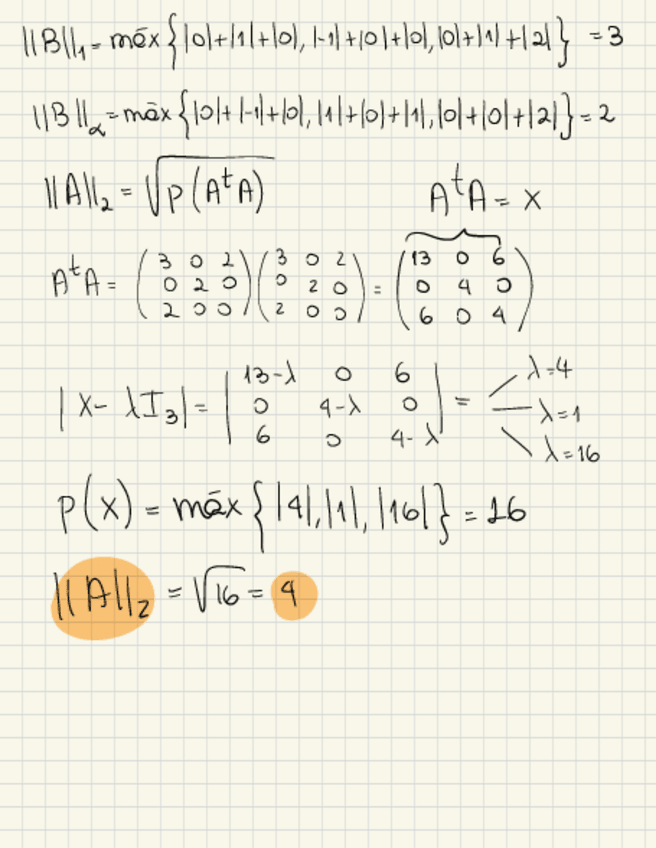 ||B||₁ = máx {|0|+|1|+|0|, |-1|+|0|+|0|, |0|+|1|+|2|} = 3
||B||∝ = máx {|0|+|-1|+|0|, |1|+|0|+|1|, |0|+|0|+|2|} = 2
||A||₂ = √(ρ(AᵗA)) AᵗA = X
AᵗA = (3 0 2 / 0 2 0 / 2 0 0) (3 0 2 / 0 2 0 / 2 0 0) = (13 0 6 / 0 4 0 / 6 0 4)
|X - λI₃| = |13-λ 0 6 / 0 4-λ 0 / 6 0 4-λ| = λ=4 λ=1 λ=16
ρ(X) = máx {|4|, |1|, |16|} = 16
||A||₂ = √16 = 4